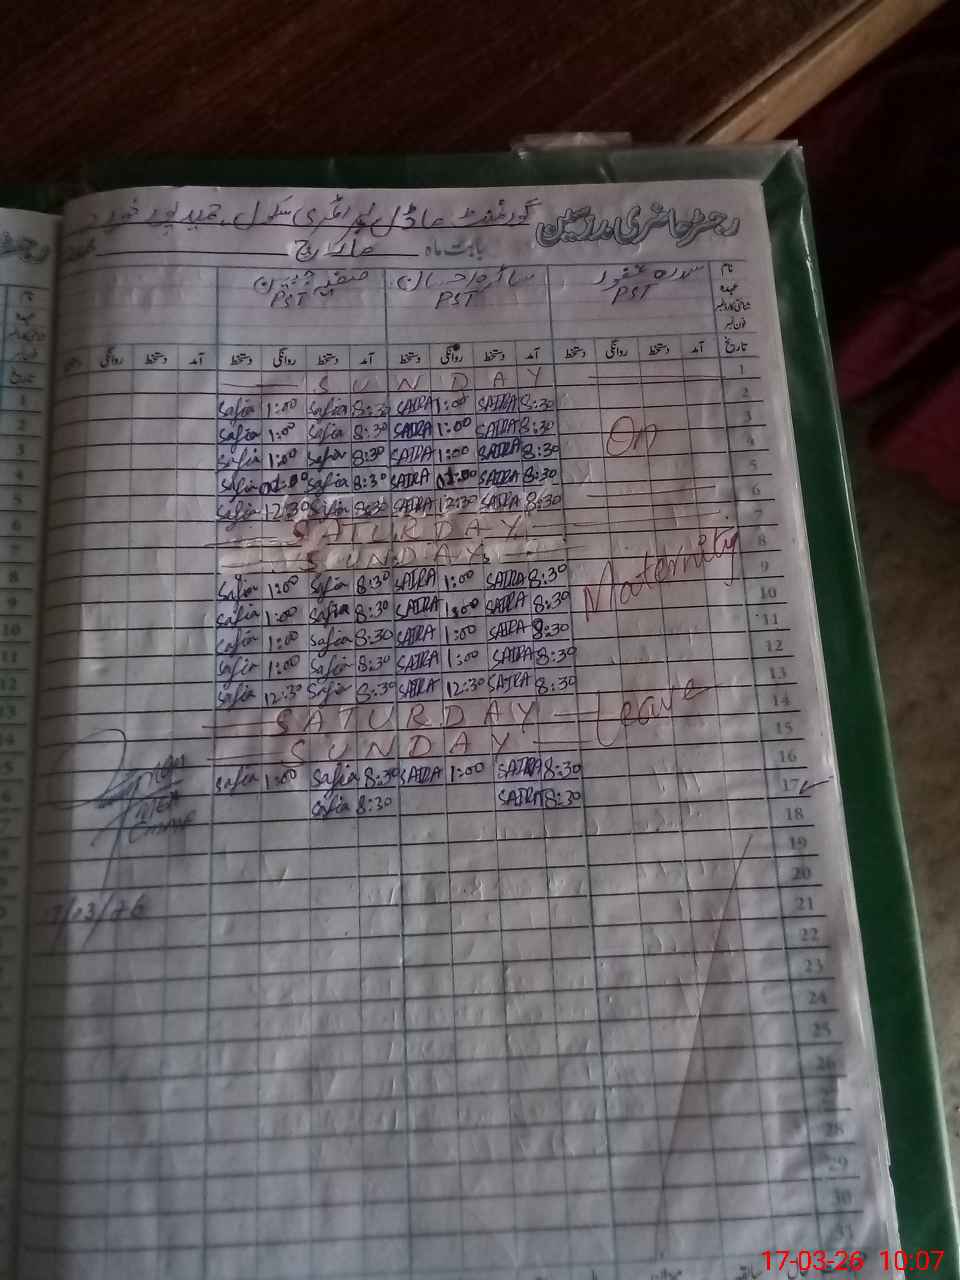 رجسٹر حاضری مدرسین گورنمنٹ ماڈل پرائمری سکول
بابت ماہ مارچ
نام سدرہ غفور سائرہ احسان صفیہ
عہدہ PST PST PST
تاریخ آمد دستخط روانگی دستخط آمد دستخط روانگی دستخط آمد دستخط روانگی دستخط آمد دستخط روانگی
1 SUNDAY
2 8:30 SAIRA 1:00 SAIRA 8:30 Safia 1:00 Safia
3 8:30 SAIRA 1:00 SAIRA 8:30 Safia 1:00 Safia
On
4 8:30 SAIRA 1:00 SAIRA 8:30 Safia 1:00 Safia
5 8:30 SAIRA 1:00 SAIRA 8:30 Safia 1:00 Safia
6 8:30 SAIRA 12:30 SAIRA 8:30 Safia 12:30 Safia
7 SATURDAY
8 SUNDAY
Maternity
9 8:30 SAIRA 1:00 SAIRA 8:30 Safia 1:00 Safia
10 8:30 SAIRA 1:00 SAIRA 8:30 Safia 1:00 Safia
11 8:30 SAIRA 1:00 SAIRA 8:30 Safia 1:00 Safia
12 8:30 SAIRA 1:00 SAIRA 8:30 Safia 1:00 Safia
13 8:30 SAIRA 12:30 SAIRA 8:30 Safia 12:30 Safia
14 Leave SATURDAY
15 SUNDAY
16 8:30 SAIRA 1:00 SAIRA 8:30 Safia 1:00 Safia
17 8:30 SAIRA 8:30 Safia
18
19
20
21
/03/26
22
23
24
25
26
27
28
29
30
31
17-03-26 10:07